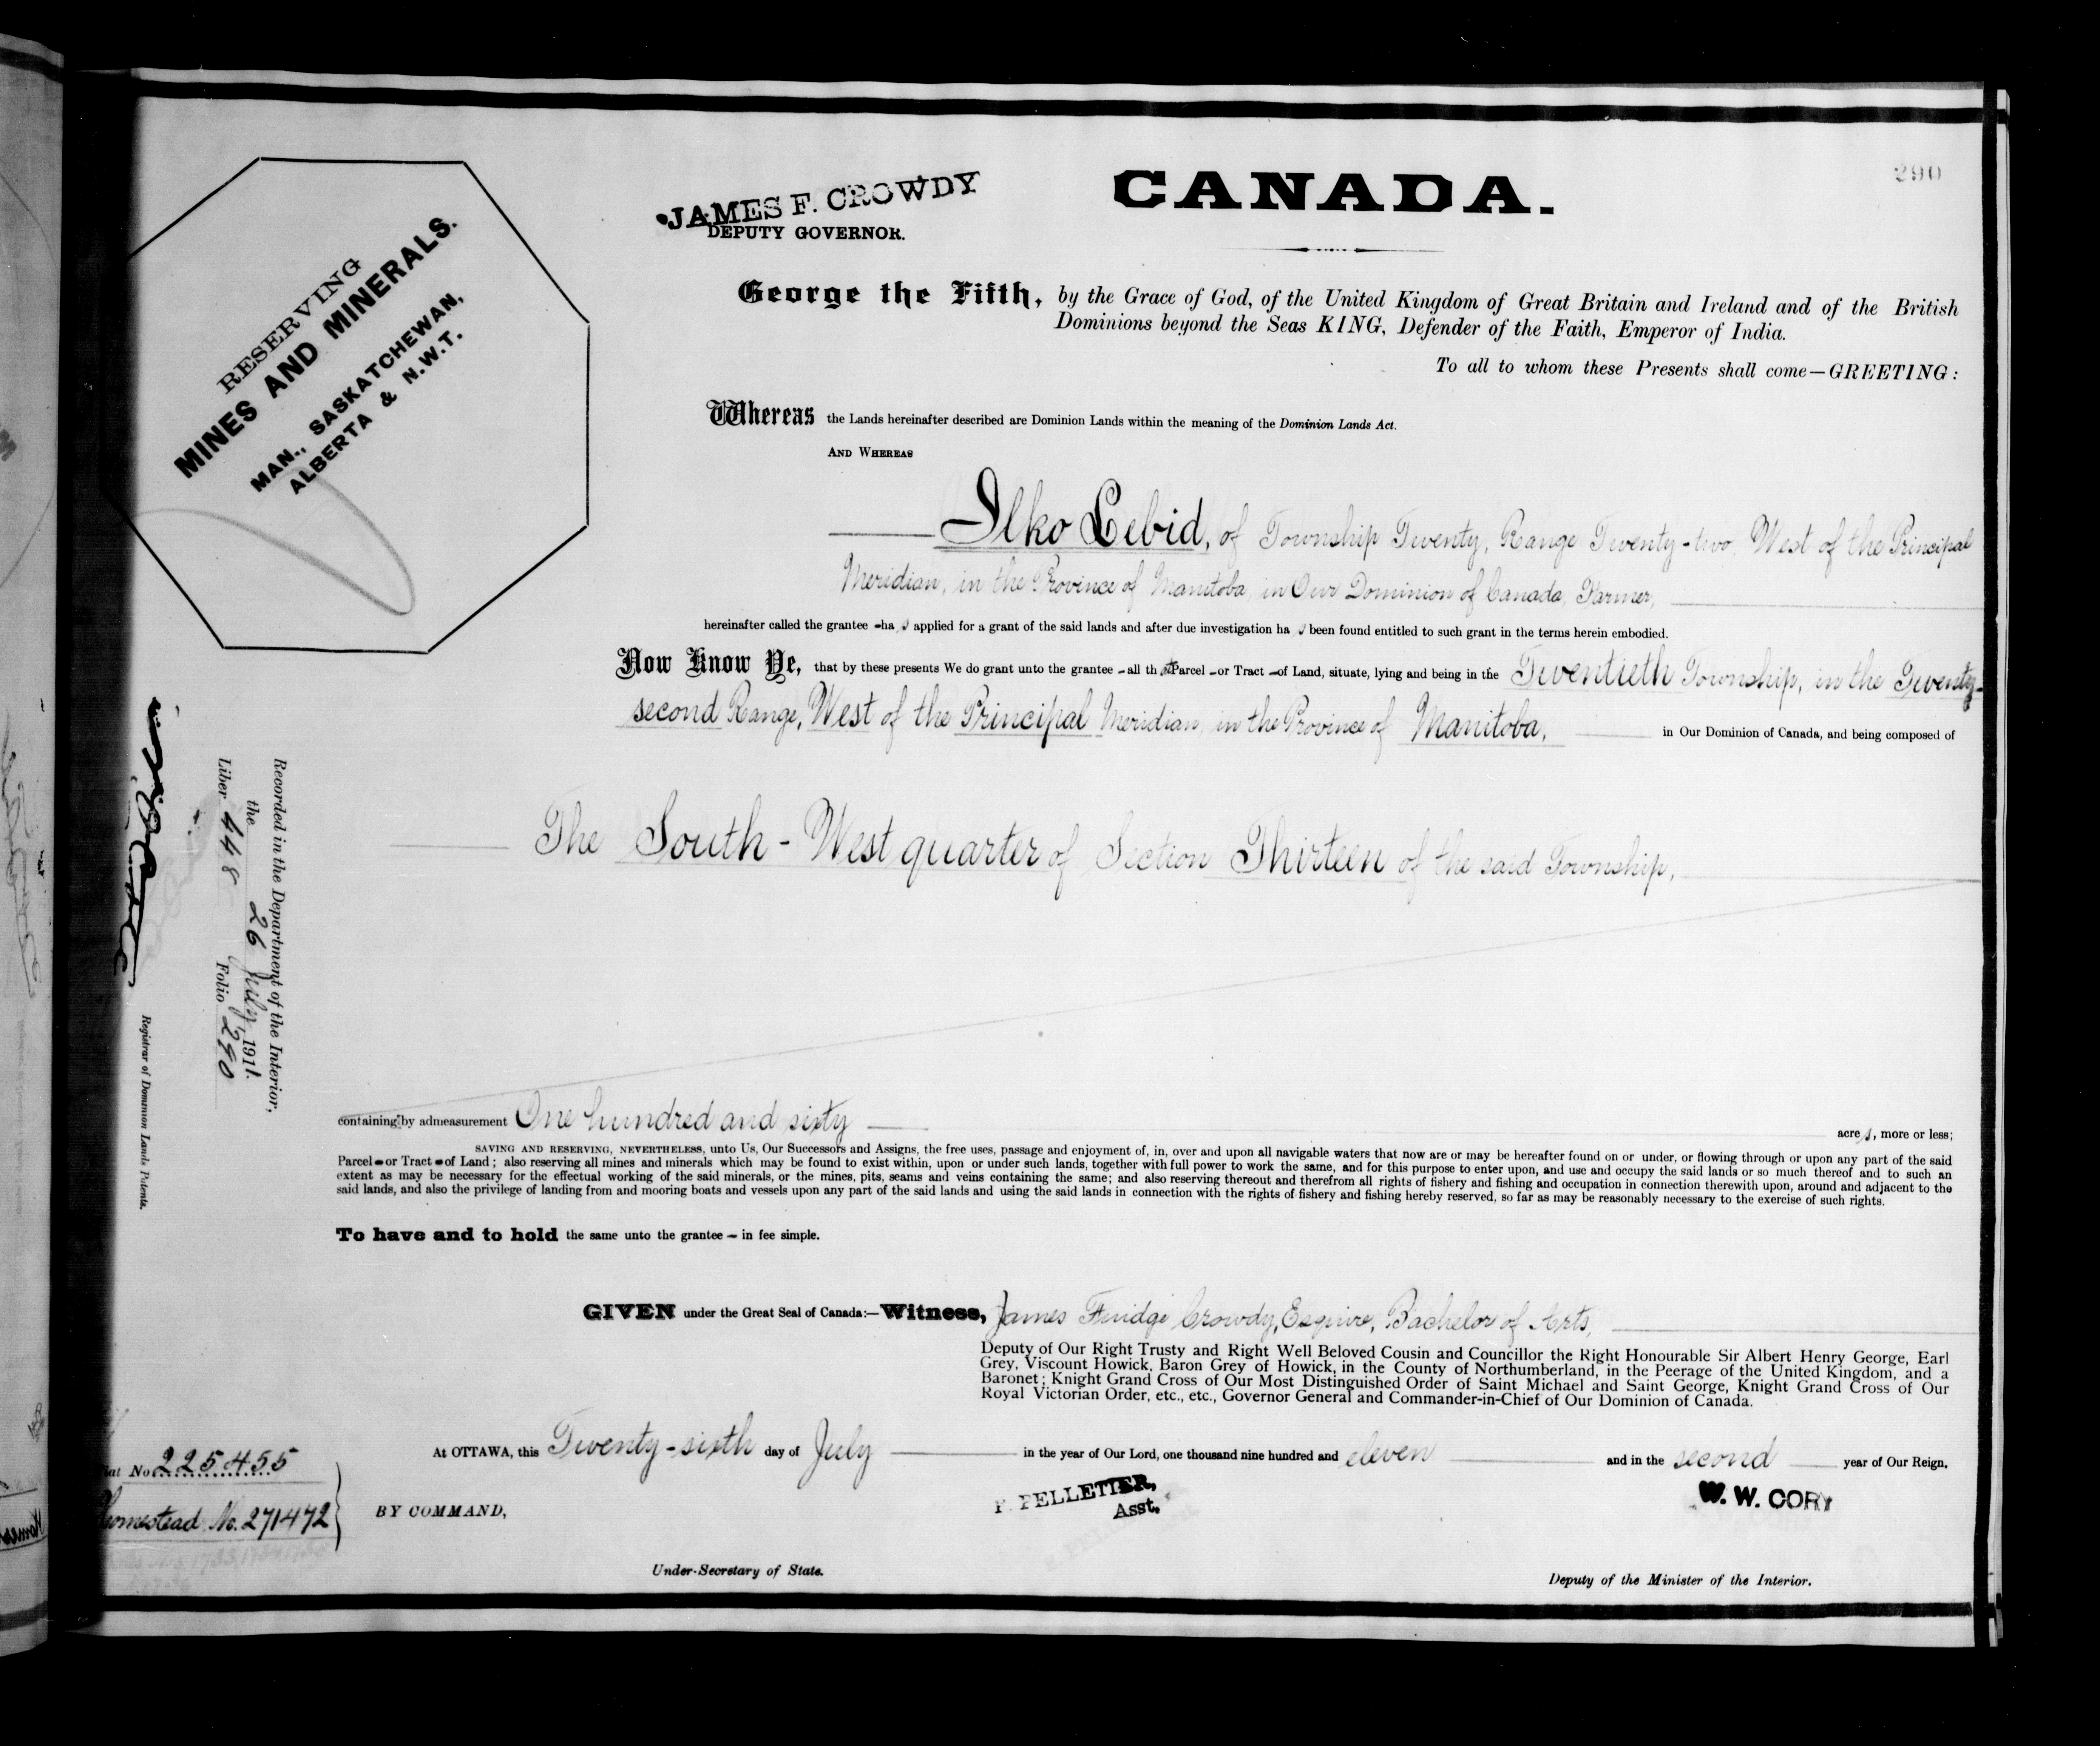 290
JAMES F. CROWDY
DEPUTY GOVERNOR.
CANADA.
RESERVING
MINES AND MINERALS.
MAN., SASKATCHEWAN,
ALBERTA & N.W.T.
George the Fifth, by the Grace of God, of the United Kingdom of Great Britain and Ireland and of the British
Dominions beyond the Seas KING, Defender of the Faith, Emperor of India.
To all to whom these Presents shall come—GREETING:
Whereas the Lands hereinafter described are Dominion Lands within the meaning of the Dominion Lands Act.
AND WHEREAS
Ilko Lebid, of Township Twenty, Range Twenty-two, West of the Principal
Meridian, in the Province of Manitoba, in Our Dominion of Canada, Farmer,
hereinafter called the grantee - has applied for a grant of the said lands and after due investigation has been found entitled to such grant in the terms herein embodied.
Now Know Ye, that by these presents We do grant unto the grantee - all that Parcel - or Tract - of Land, situate, lying and being in the Twentieth Township, in the Twenty-
second Range, West of the Principal Meridian, in the Province of Manitoba, in Our Dominion of Canada, and being composed of
The South-West quarter of Section Thirteen of the said Township,
Recorded in the Department of the Interior,
the 26 July, 1911.
Liber 448 Folio 290
Registrar of Dominion Lands Patents.
containing by admeasurement One hundred and sixty acres, more or less;
SAVING AND RESERVING, NEVERTHELESS, unto Us, Our Successors and Assigns, the free uses, passage and enjoyment of, in, over and upon all navigable waters that now are or may be hereafter found on or under, or flowing through or upon any part of the said
Parcel - or Tract - of Land; also reserving all mines and minerals which may be found to exist within, upon or under such lands, together with full power to work the same, and for this purpose to enter upon, and use and occupy the said lands or so much thereof and to such an
extent as may be necessary for the effectual working of the said minerals, or the mines, pits, seams and veins containing the same; and also reserving thereout and therefrom all rights of fishery and fishing and occupation in connection therewith upon, around and adjacent to the
said lands, and also the privilege of landing from and mooring boats and vessels upon any part of the said lands and using the said lands in connection with the rights of fishery and fishing hereby reserved, so far as may be reasonably necessary to the exercise of such rights.
To have and to hold the same unto the grantee - in fee simple.
GIVEN under the Great Seal of Canada:—Witness, James Fuidge Crowdy, Esquire, Bachelor of Arts,
Deputy of Our Right Trusty and Right Well Beloved Cousin and Councillor the Right Honourable Sir Albert Henry George, Earl
Grey, Viscount Howick, Baron Grey of Howick, in the County of Northumberland, in the Peerage of the United Kingdom, and a
Baronet; Knight Grand Cross of Our Most Distinguished Order of Saint Michael and Saint George, Knight Grand Cross of Our
Royal Victorian Order, etc., etc., Governor General and Commander-in-Chief of Our Dominion of Canada.
At OTTAWA, this Twenty-sixth day of July in the year of Our Lord, one thousand nine hundred and eleven and in the second year of Our Reign.
No. 225455
Homestead No. 271472
BY COMMAND,
P. PELLETIER,
Asst.
W. W. CORY
Under-Secretary of State.
Deputy of the Minister of the Interior.